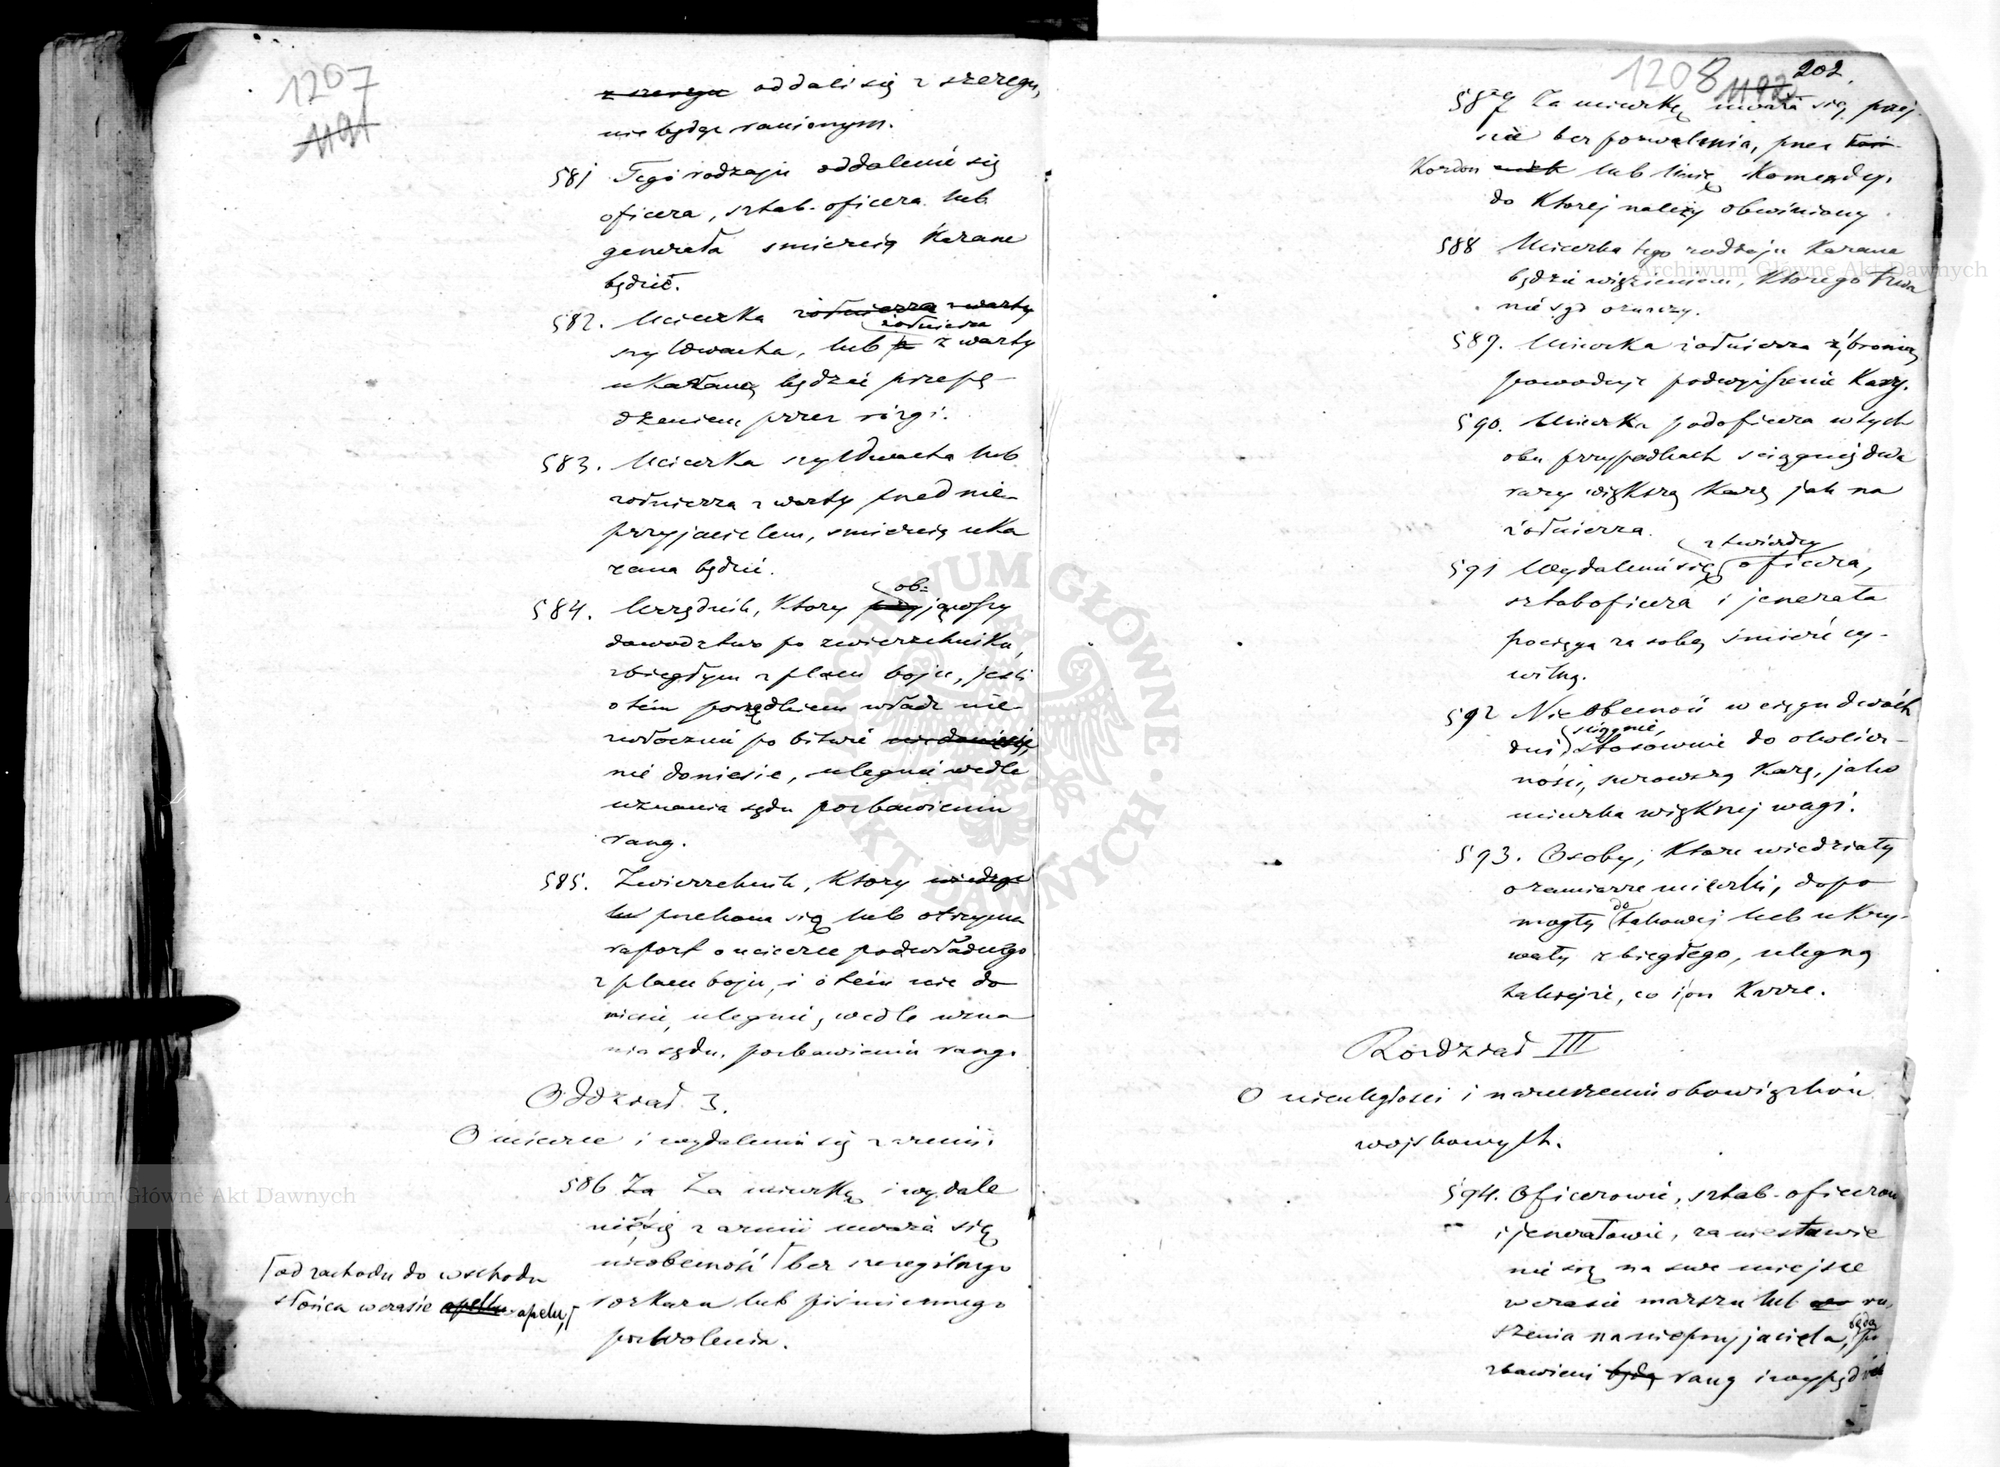 1207
1191
z szeregu oddali się z szeregu,
nie będąc ranionym.
581 Tego rodzaju oddalenie się
oficera, sztab-oficera lub
generała smiercią karane
będzie.
582. Ucieczka żołnierza z warty
żołnierza
szyldwacha, lub z warty
ukaraną będzie przepę-
dzeniem przez rózgi.
583. Ucieczka szyldwacha lub
żołnierza z warty przed nie-
przyjacielem, smiercią uka
rana będzie.
ob-
584. Urzędnik, ktory przyjąwszy
dowodztwo po zwierzchniku,
zbiegłym z placu boju, jeśli
o tém porządkiem władz nie-
zwłocznie po bitwie nie doniesie,
nie doniesie, ulegnie wedle
uznania sądu pozbawieniu
rang.
585. Zwierzchnik, ktory
przekona się lub otrzyma
raport o ucieczce podwładnego
z placu boju, i o tém nie do
niesie, ulegnie, wedle uzna
nia sądu, pozbawieniu rang.
Oddział 3.
O ucieczce i wydaleniu się z armii.
586 Za Za ucieczkę i wydale
nie się z armii uważa się
nieobecność bez szczególnego
rozkazu lub piśmiennego
pozwolenia.
od zachodu do wschodu
słońca w czasie apellu apelu,
1208 1192 202.
587 Za ucieczkę uważa się, przej-
ście bez pozwolenia, przez
Kordon lub linię Komendy,
do ktorej należy obwiniony.
588 Ucieczka tego rodzaju karana
będzie więzieniem, ktorego trwa
nie sąd oznaczy.
589. Ucieczka żołnierza z bronią
powoduje podwyższenie kary.
590. Ucieczka podoficera w tych
obu przypadkach ściągnie dwa
razy większą karę jak na
żołnierza.
z twierdzy
591 Wydalenie się oficera,
sztaboficera i jenerała
pociąga za sobą śmierć cy-
wilną.
592 Nieobecność w ciągu dwóch
ściągnie,
dni stosownie do okolicz-
ności, surowszą karę, jako
ucieczka większej wagi.
593. Osoby, ktore wiedziały
o zamiarze ucieczki, dopo
do
mogły takowej lub ukry-
wały zbiegłego, ulegną
takiejże, co i on karze.
Rozdział III
O nieuległości i naruszeniu obowiązków
wojskowych.
594. Oficerowie, sztab-oficerow
i jenerałowie, za niestawie
nie się na swe miejsce
w czasie marszu lub ru-
będą
szenia na nieprzyjaciela, po
zbawieni będą rang i wypędzeni
Archiwum Główne Akt Dawnych
Archiwum Główne Akt Dawnych
ARCHIWUM GŁÓWNE AKT DAWNYCH